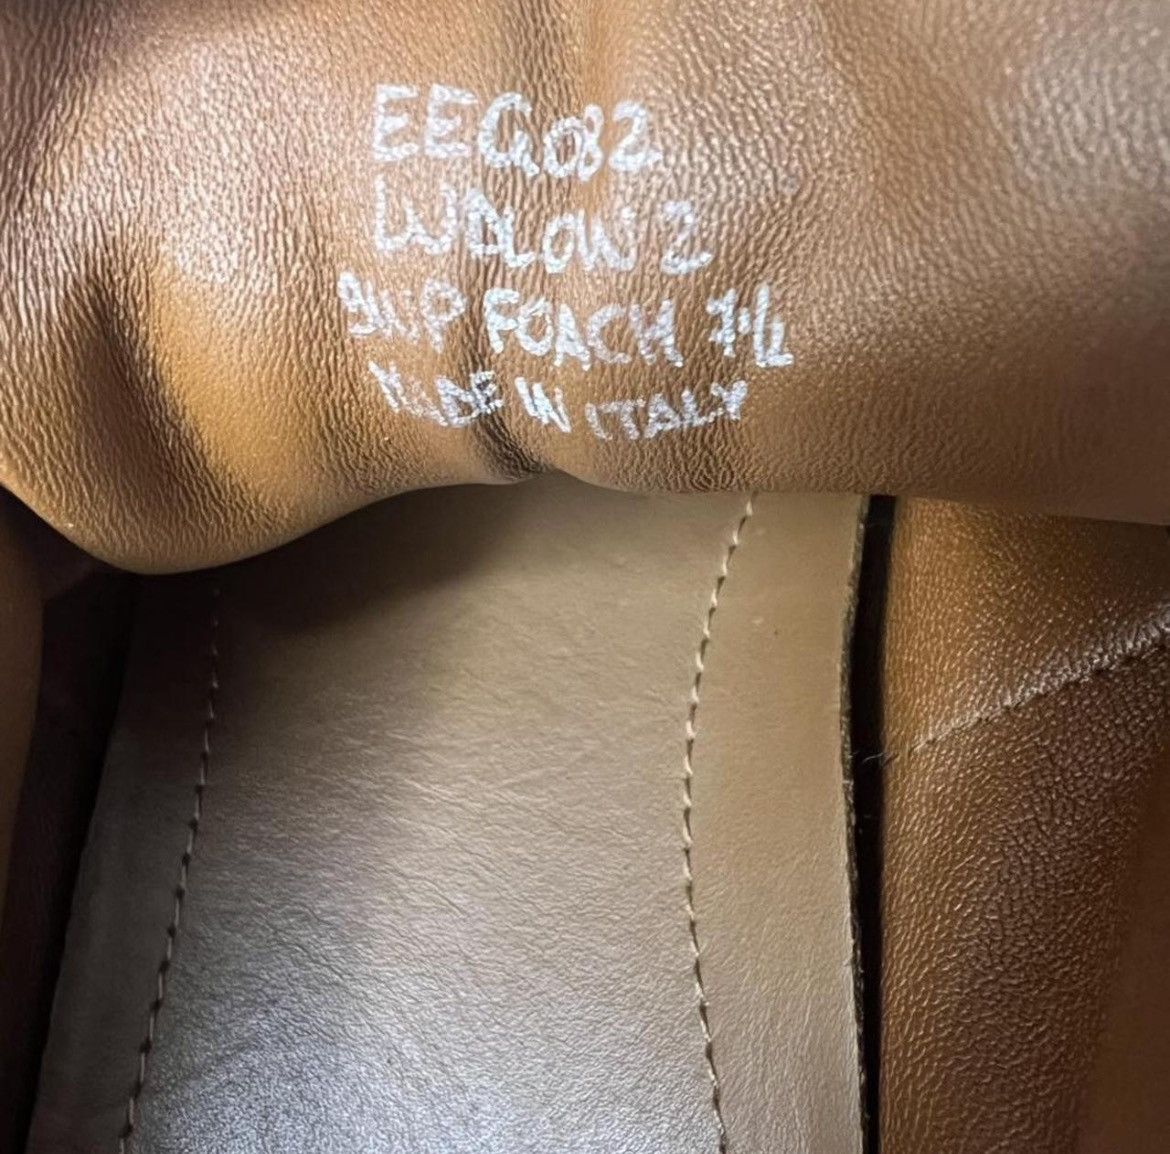 EEG082
LUDLOW 2
FOACH 7 1/2
MADE IN ITALY